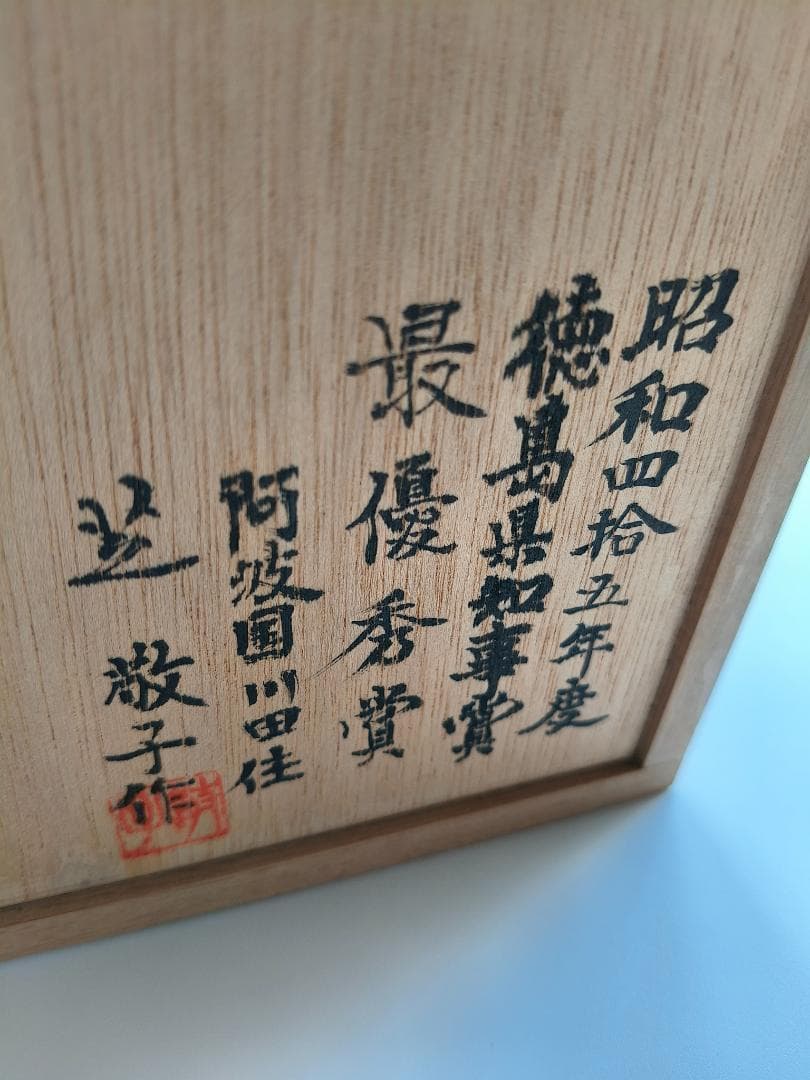 昭和四拾五年度
徳島県知事賞
最優秀賞
阿波国川田住
芝 敬子作